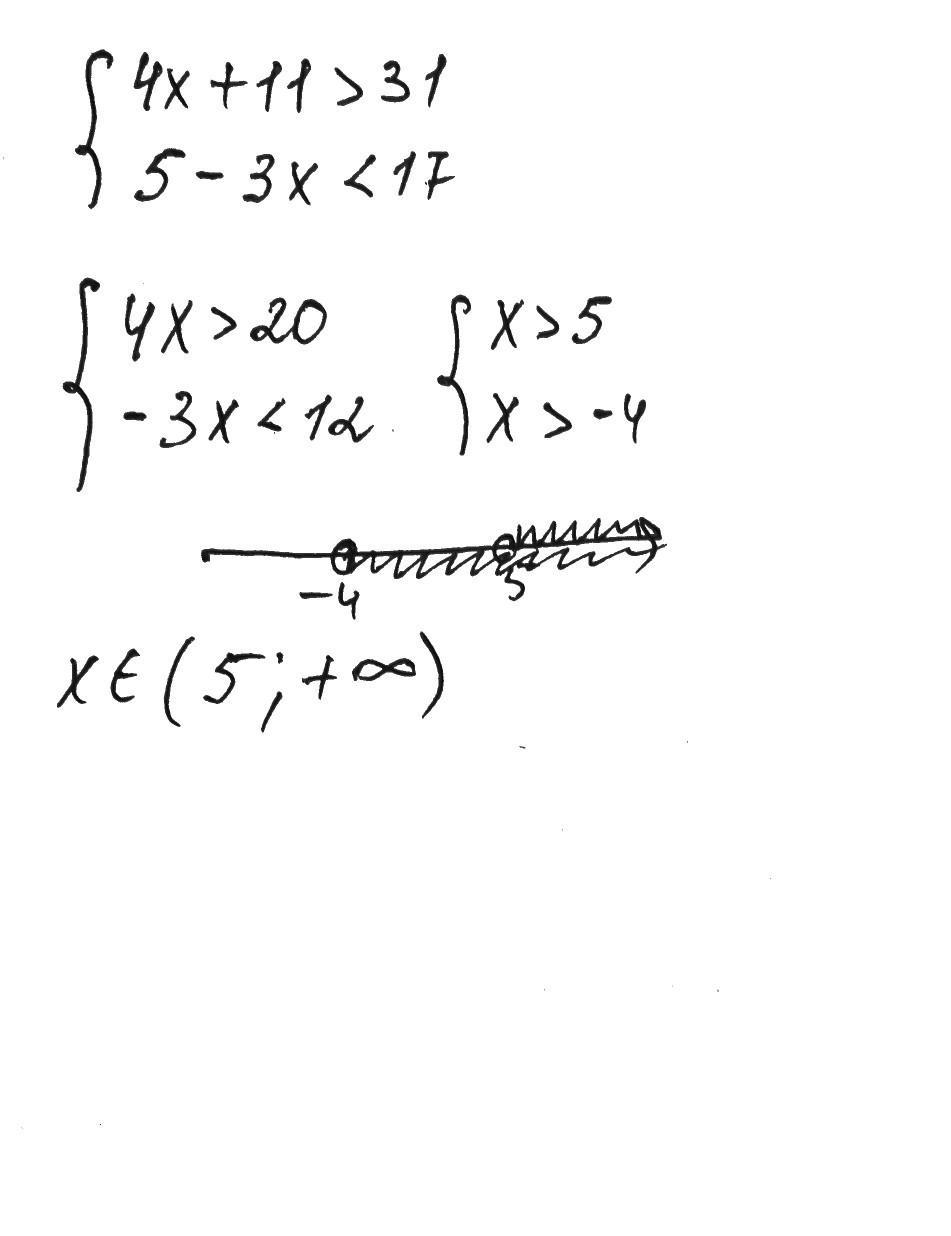 4x+11>31
5-3x<17
4x>20 x>5
-3x<12 x>-4
-4 5
x∈(5;+∞)